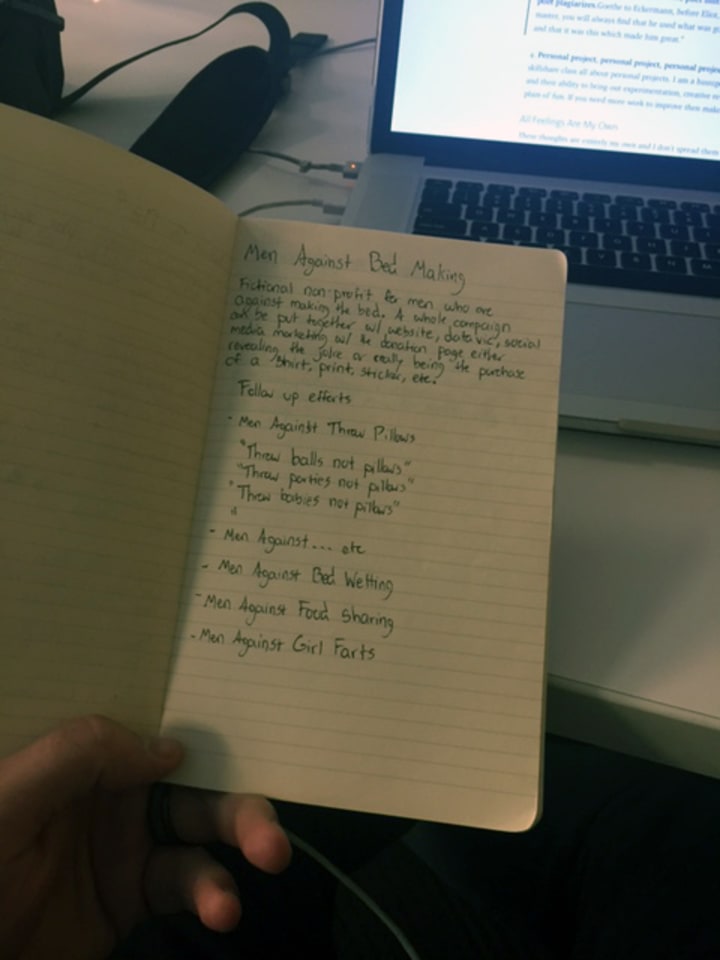 poet plagiarizes. Goethe to Eckermann, before Eliot
master, you will always find that he used what was go
and that it was this which made him great."
1. Personal project, personal project, personal projec
skillshare class all about personal projects. I am a
and their ability to bring out experimentation, creative
plain of fun. If you need more work to improve then make
All Feelings Are My Own
These thoughts are entirely my own and I don't spread them
Men Against Bed Making
Fictional non-profit for men who are
against making the bed. A whole campaign
will be put together w/ website, data vis, social
media marketing w/ the donation page either
revealing the joke or really being the purchase
of a shirt, print, sticker, etc.
Follow up efforts
- Men Against Throw Pillows
"Throw balls not pillows"
"Throw parties not pillows"
"Throw babies not pillows"
"
- Men Against... etc
- Men Against Bed Wetting
- Men Against Food Sharing
- Men Against Girl Farts